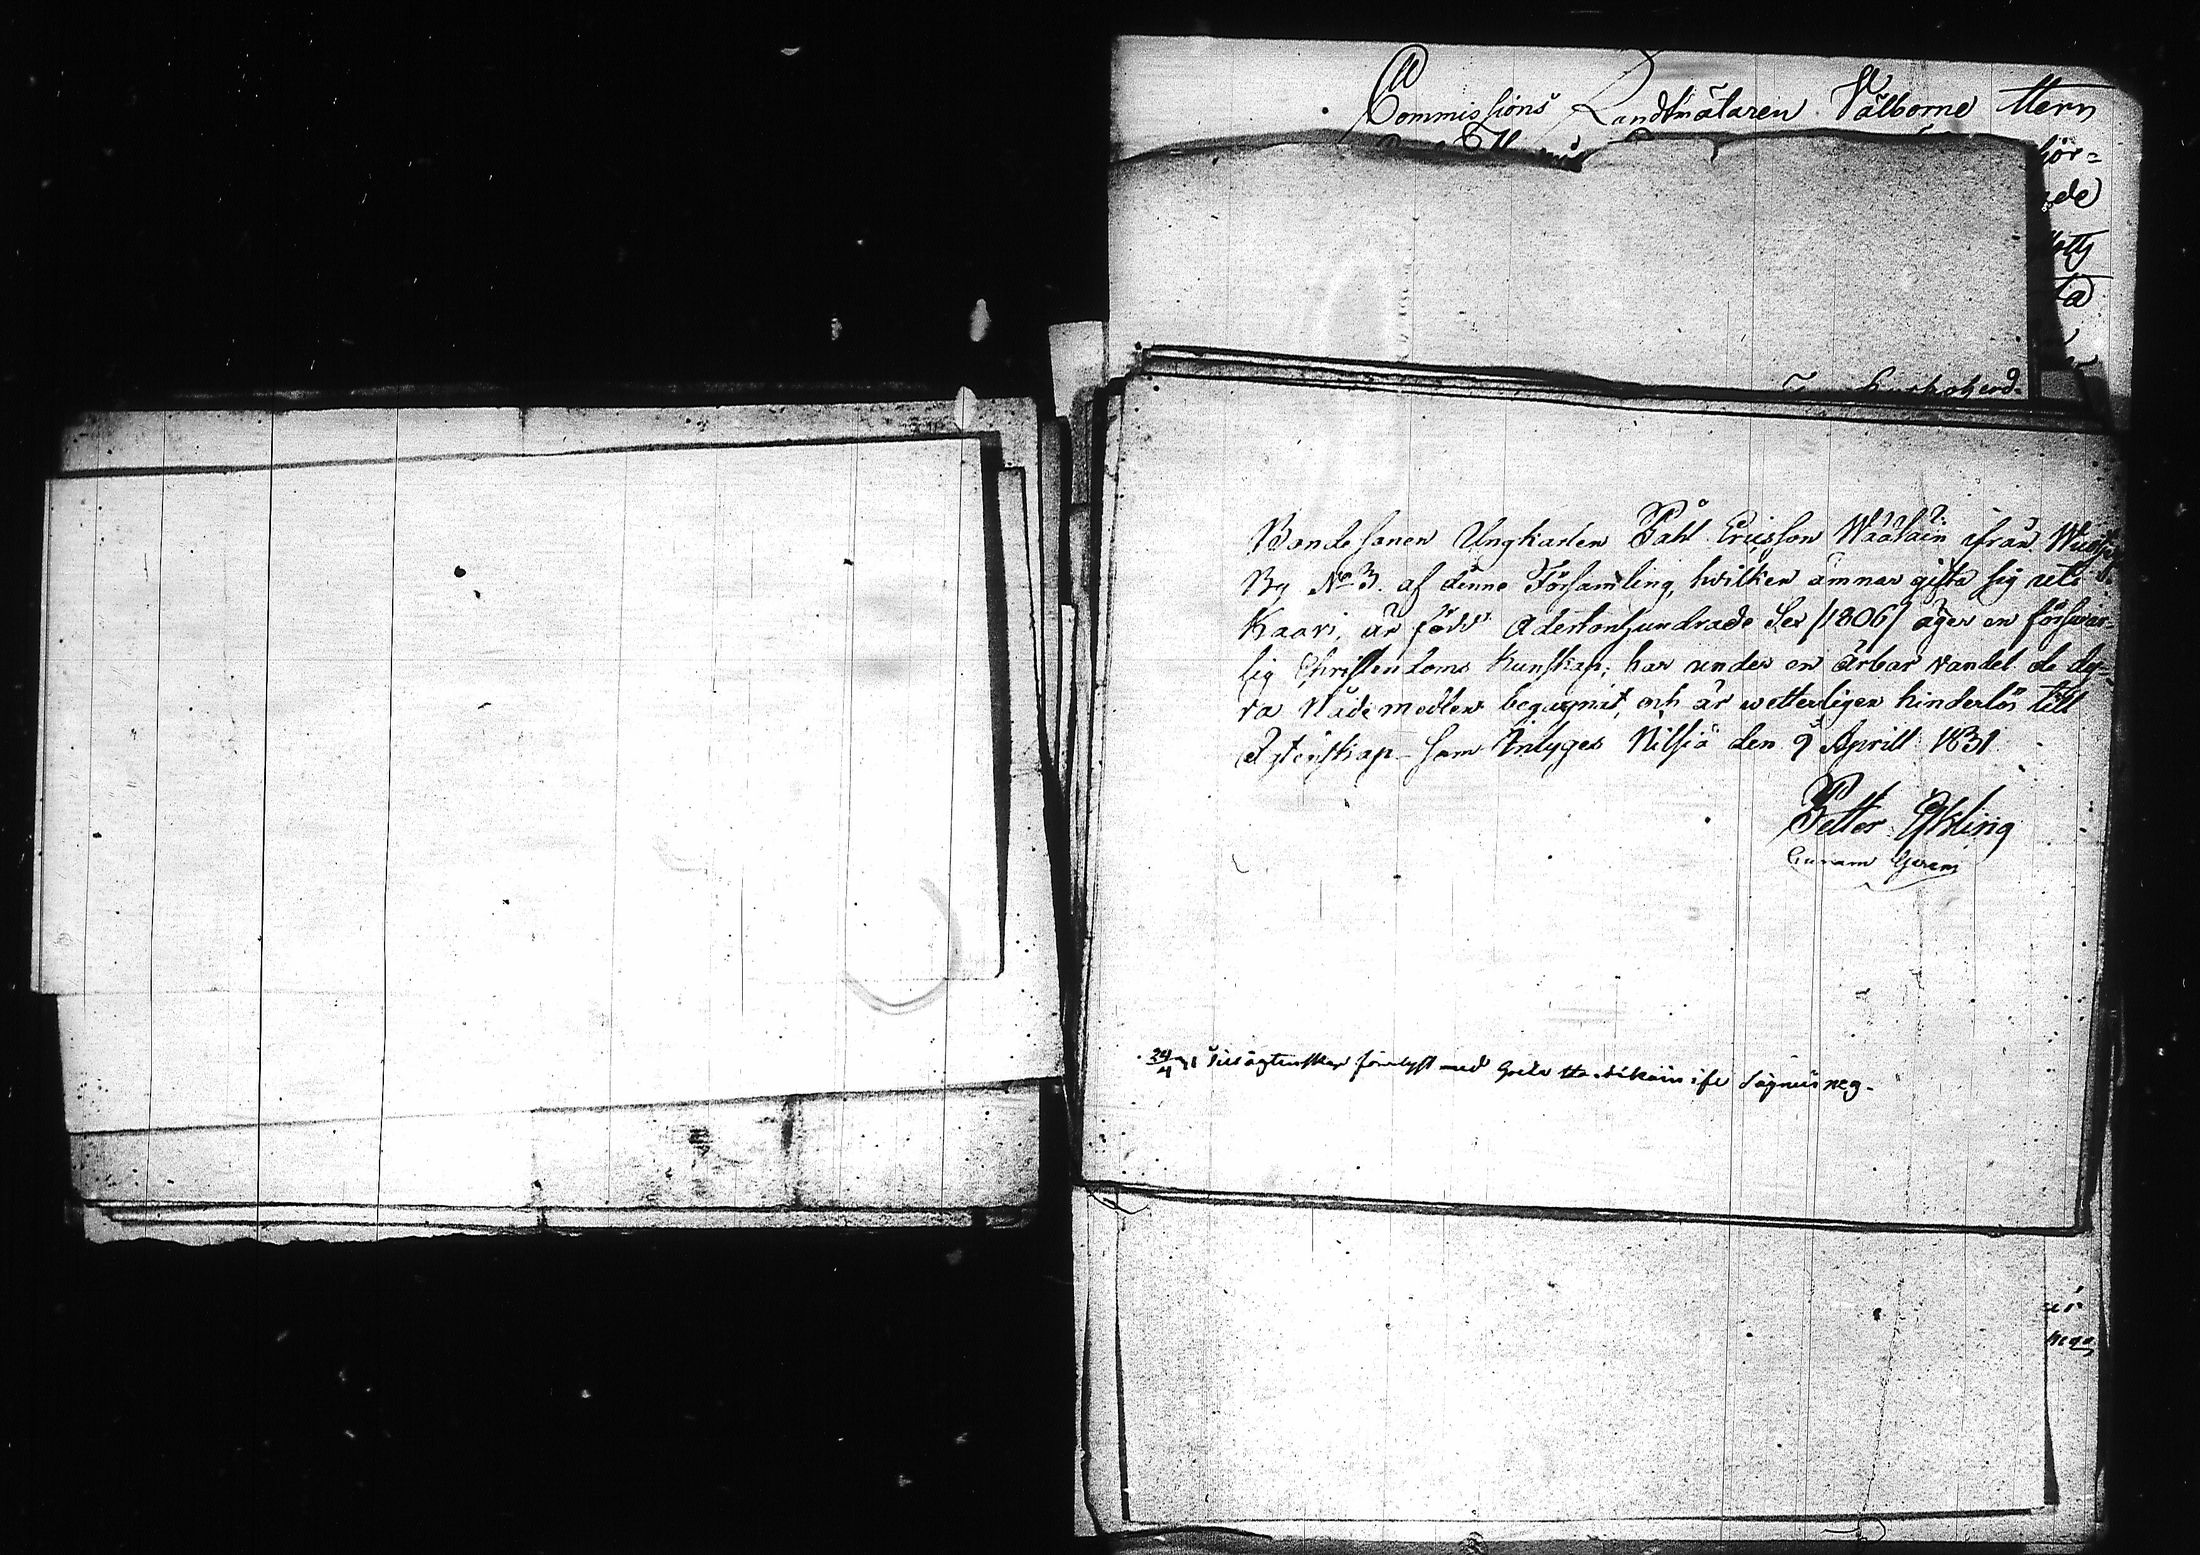 Commissions Landtmätaren Välborne Herr
hör=
ade
ta
Bonde sonen Ungkarlen Påhl Ericsson Wäätäin ifrån
By No 3. af denne Församling, hvilken ämnar gifta sig uti
Kaavi, är född Adertonhundrade Sex /1806/ äger en försvar-
lig Christendoms kunskap; har under en ärbar vandel de dy-
ra Nådemedlen begagnat, och är wetterligen hinderlös till
Ägtenskap - som intyges Nilsiä den 9 Aprill 1831
Petter Eskling
Curam Gerens
24/4 31 till ägtenskap förelyst med Greta
är